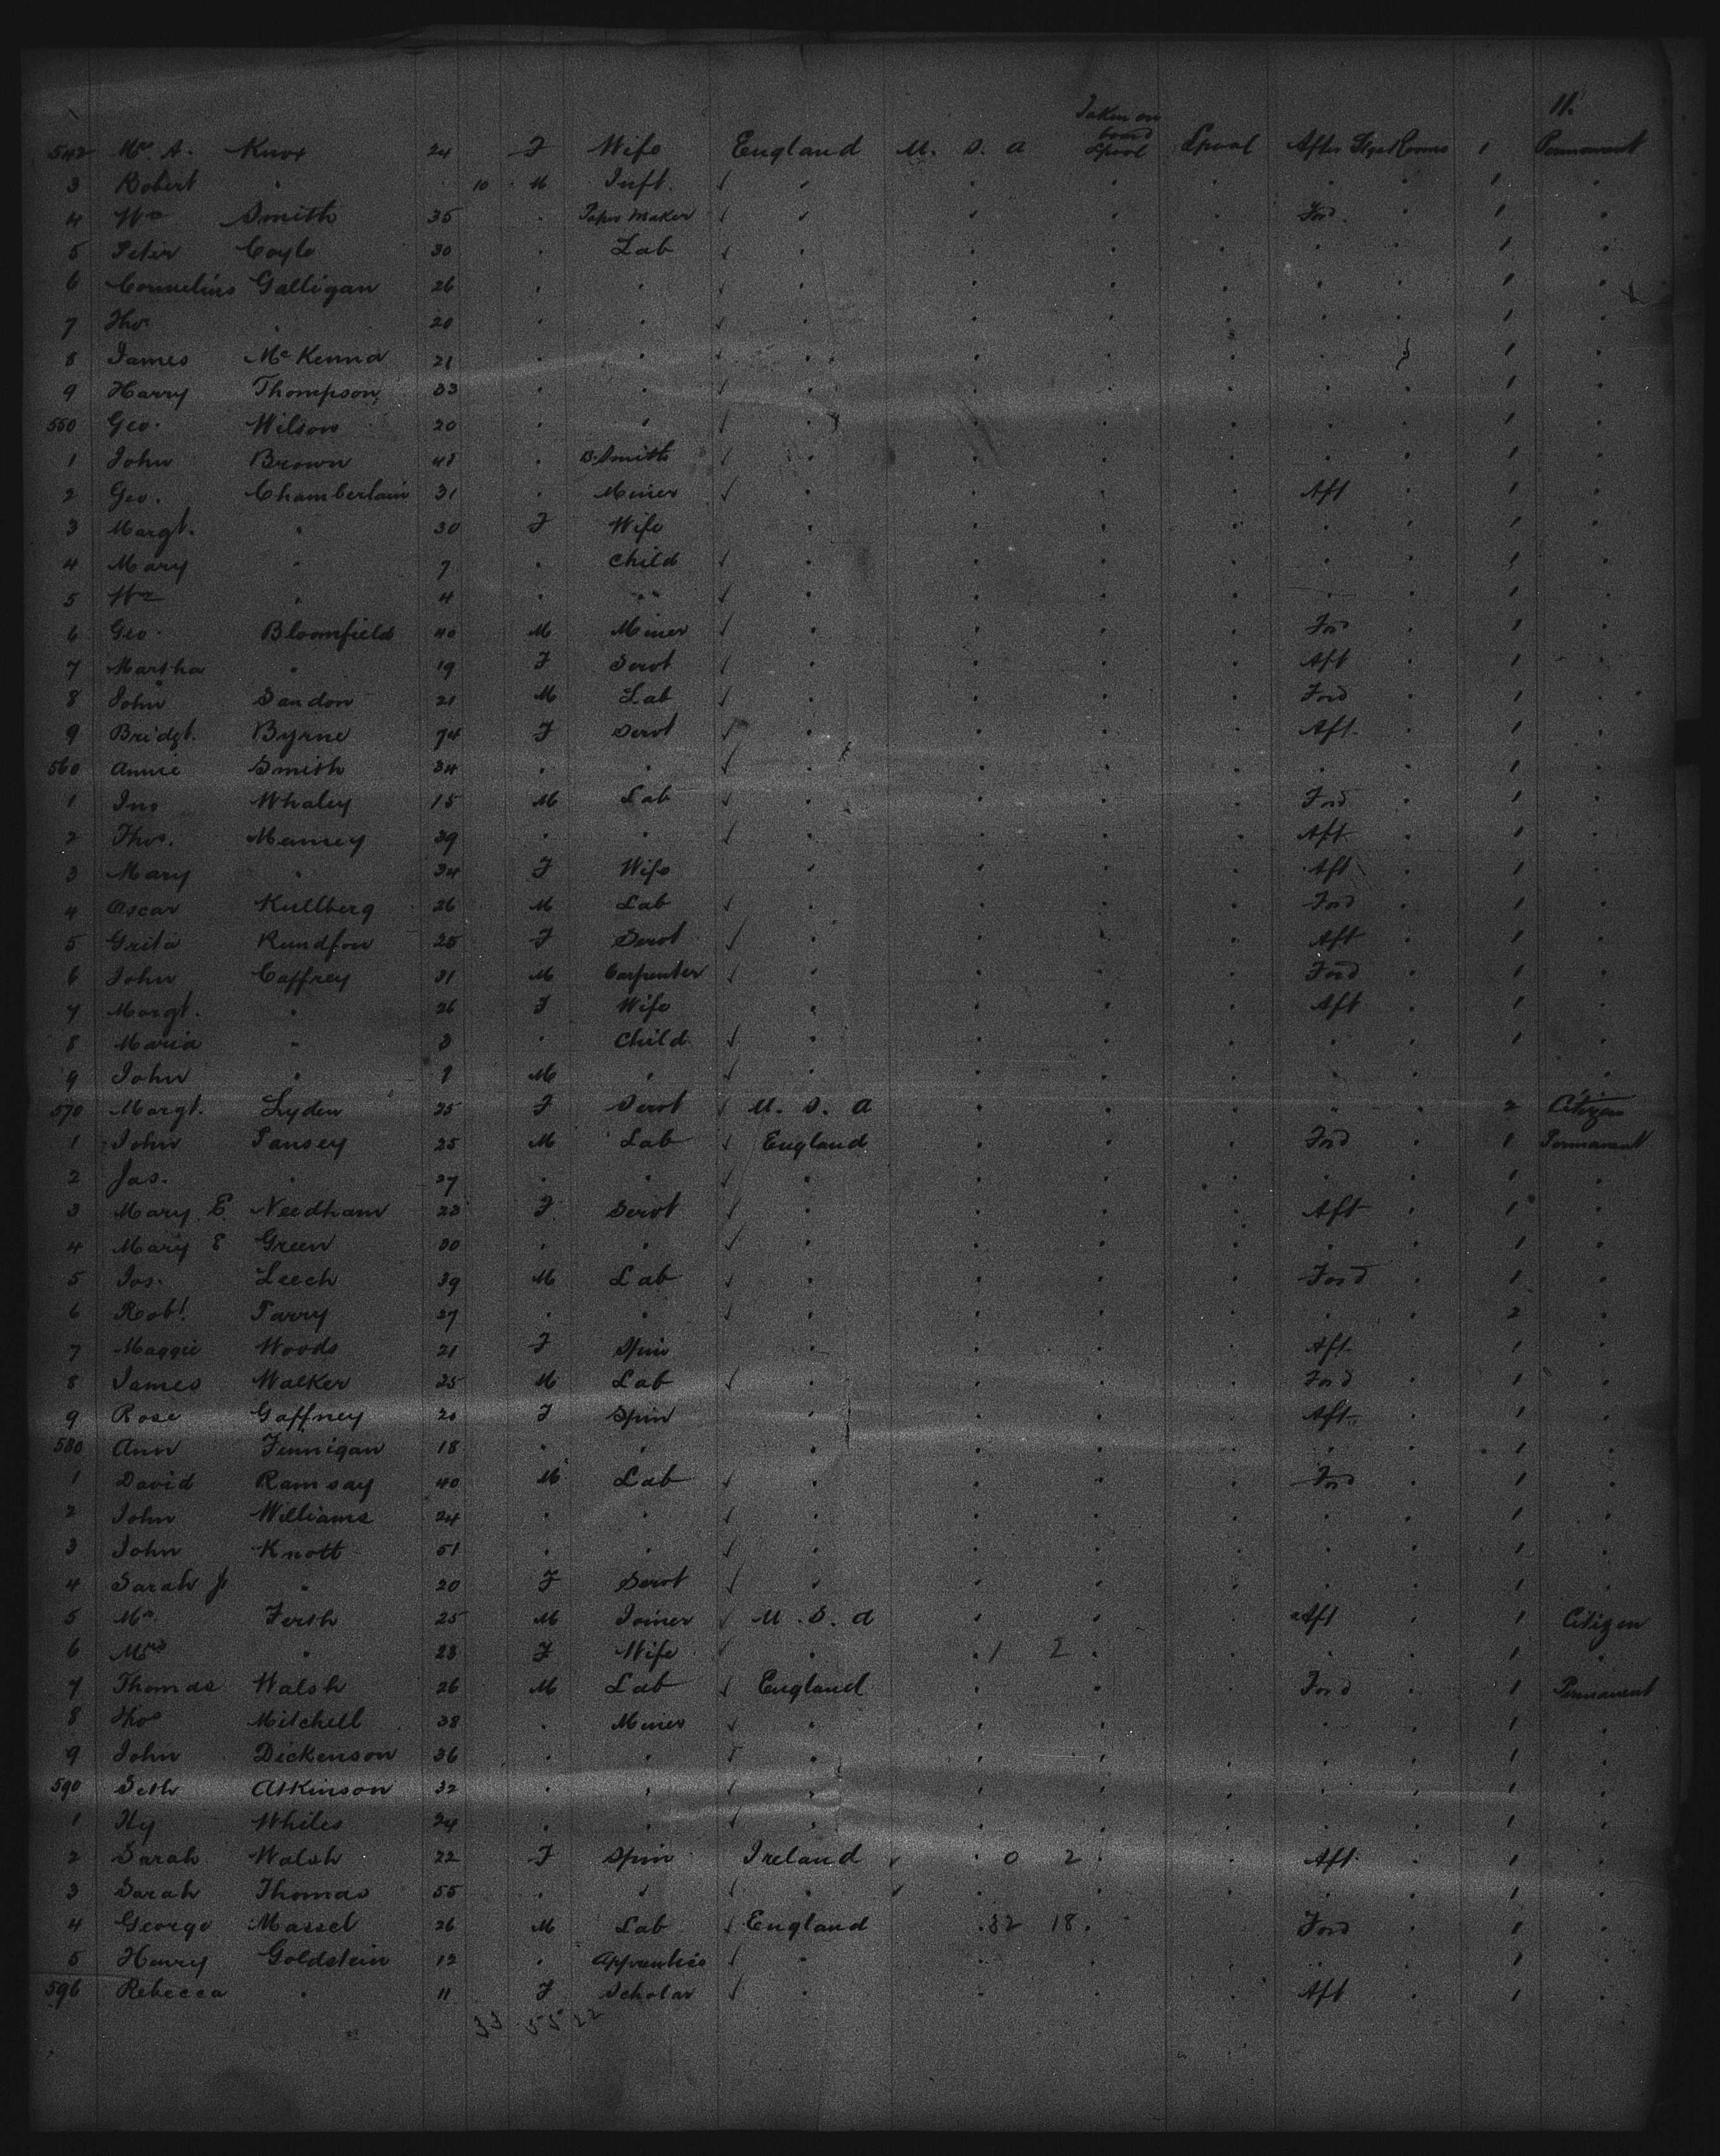 11.
Taken on
542 Mrs. A. Knox 24 F Wife England U. S. A board Lpool Lpool After Stge Rooms 1 Permanent
3 Robert " 10 M Inft. ✓ " " " " " " 1 "
4 Wm Smith 35 " Paper Maker ✓ " " " " Ford " 1 "
5 Peter Coyle 30 " Lab ✓ " " " " " " 1 "
6 Cornelius Galligan 26 " " ✓ " " " " " " 1 "
7 Thos " 20 " " ✓ " " " " " " 1 "
8 James McKenna 21 " " ✓ " " " " " " 1 "
9 Harry Thompson 33 " " ✓ " " " " " " 1 "
550 Geo. Wilson 20 " " ✓ " " " " " " 1 "
1 John Brown 48 " B. Smith ✓ " " " " " " 1 "
2 Geo. Chamberlain 31 " Miner ✓ " " " " Aft " 1 "
3 Margt. " 30 F Wife " " " " " " 1 "
4 Mary " 7 " Child ✓ " " " " " " 1 "
5 Wm " 4 " " " ✓ " " " " " " 1 "
6 Geo. Bloomfield 40 M Miner ✓ " " " " Ford " 1 "
7 Martha " 19 F Servt ✓ " " " " Aft " 1 "
8 John Sandon 21 M Lab ✓ " " " " Ford " 1 "
9 Bridgt. Byrne 74 F Servt ✓ " " " " Aft. " 1 "
560 Annie Smith 34 " " ✓ " " " " " " 1 "
1 Jno Whaley 15 M Lab ✓ " " " " Ford " 1 "
2 Thos. 39 " " ✓ " " " " Aft " 1 "
3 Mary " 34 F Wife " " " " Aft " 1 "
4 Oscar Kullberg 26 M Lab ✓ " " " " Ford " 1 "
5 Grita 25 F Servt ✓ " " " " Aft " 1 "
6 John Caffrey 31 M Carpenter ✓ " " " " Ford " 1 "
7 Margt. " 26 F Wife " " " " Aft " 1 "
8 Maria " 3 " Child ✓ " " " " " " 1 "
9 John " M " ✓ " " " " " " "
570 Margt. Lyden 25 F Servt ✓ U. S. A " " " " " 2 Citizen
1 John Pansey 25 M Lab ✓ England " " " Ford " 1 Permanent
2 Jas. " 27 " " ✓ " " " " " " 1 "
3 Mary E. Needham 23 F Servt ✓ " " " " Aft " 1 "
4 Mary E Green 30 " " ✓ " " " " " " 1 "
5 Jos. Leech 39 M Lab ✓ " " " " Ford " 1 "
6 Robt. Parry 27 " " ✓ " " " " " " 2 "
7 Maggie Woods 21 F Spin " " " " Aft " 1 "
8 James Walker 25 M Lab ✓ " " " " Ford " 1 "
9 Rose Gaffney 20 F Spin " " " " Aft " 1 "
580 Ann Finnigan 18 " " " " " " " " 1 "
1 David Ramsay 40 M Lab ✓ " " " " Ford " 1 "
2 John Williams 24 " " ✓ " " " " " " 1 "
3 John Knott 51 " " ✓ " " " " " " 1 "
4 Sarah J. " 20 F Servt ✓ " " " " " " 1 "
5 Mr. Firth 25 M Joiner ✓ U. S. A " " " Aft " 1 Citizen
6 Mrs " 23 F Wife ✓ " " 1 2 " " " " 1 "
7 Thomas Walsh 26 M Lab ✓ England " " " Ford " 1 Permanent
8 Thos Mitchell 38 " Miner ✓ " " " " " " 1 "
9 John Dickenson 36 " " ✓ " " " " " " 1 "
590 Seth Atkinson 32 " " ✓ " " " " " " 1 "
1 Hy Whiles 24 " " ✓ " " " " " " 1 "
2 Sarah Walsh 22 F Spin Ireland ✓ " 0 2 " " Aft " 1 "
3 Sarah Thomas 55 " " ✓ " ✓ " " " " " 1 "
4 George Massel 26 M Lab ✓ England " 32 18 " " Ford " 1 "
5 Henry Goldstein 12 " Apprentice ✓ " " " " " " 1 "
596 Rebecca " 11 F Scholar ✓ " " " " Aft " 1 "
33 55 22